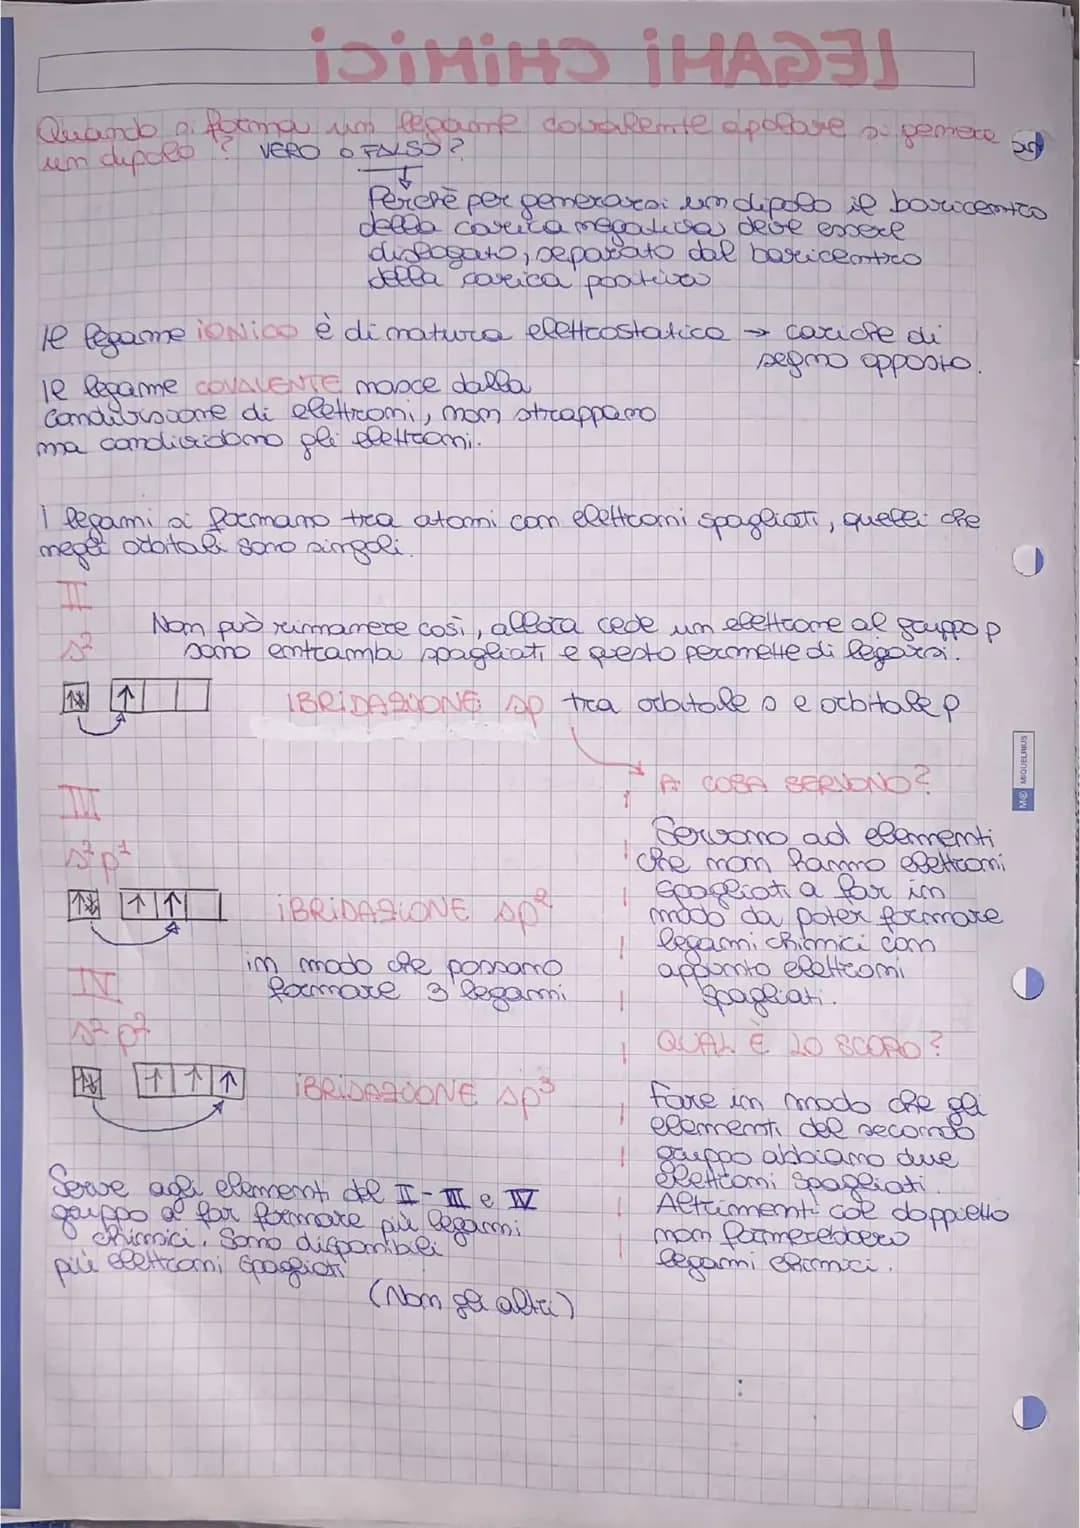 LEGAMI CHIMICI
Quando si forma un legame covalente apolare si genera
un dipolo? VERO o FALSO?
Perché per generarsi un dipolo il baricentro
della carica negativa deve essere
dislogato, separato dal baricentro
della carica positiva
Il legame iONiCO è di natura elettrostatica → cariche di
segno opposto.
Il legame COVALENTE nasce dalla
condivisione di elettroni, non strappano
ma condividono gli elettroni.
I legami si formano tra atomi con elettroni spagliati, quelli che
negli orbitali sono singoli.
II
s²
Non può rimanere così, allora cede un elettrone al gruppo p
sono entrambi spagliati e questo permette di legarsi.
iBRiDAZiONE sp tra orbitale s e orbitale p
A COSA SERVONO?
III
Servono ad elementi
s² p¹
che non hanno elettroni
spagliati a far in
iBRiDAZiONE sp²
modo da poter formare
legami chimici con
in modo che possano
appunto elettroni
formare 3 legami
spagliati.
IV
s² p²
QUAL È LO SCOPO?
iBRiDAZiONE sp³
Fare in modo che gli
elementi del secondo
gruppo abbiamo due
elettroni spagliati.
Serve agli elementi del II-III e IV
Altrimenti col doppietto
gruppo a far formare più legami
non formerebbero
chimici. Sono disponibili
legami chimici.
più elettroni spagliati
(Non gli altri)
M® MIQUELRIUS